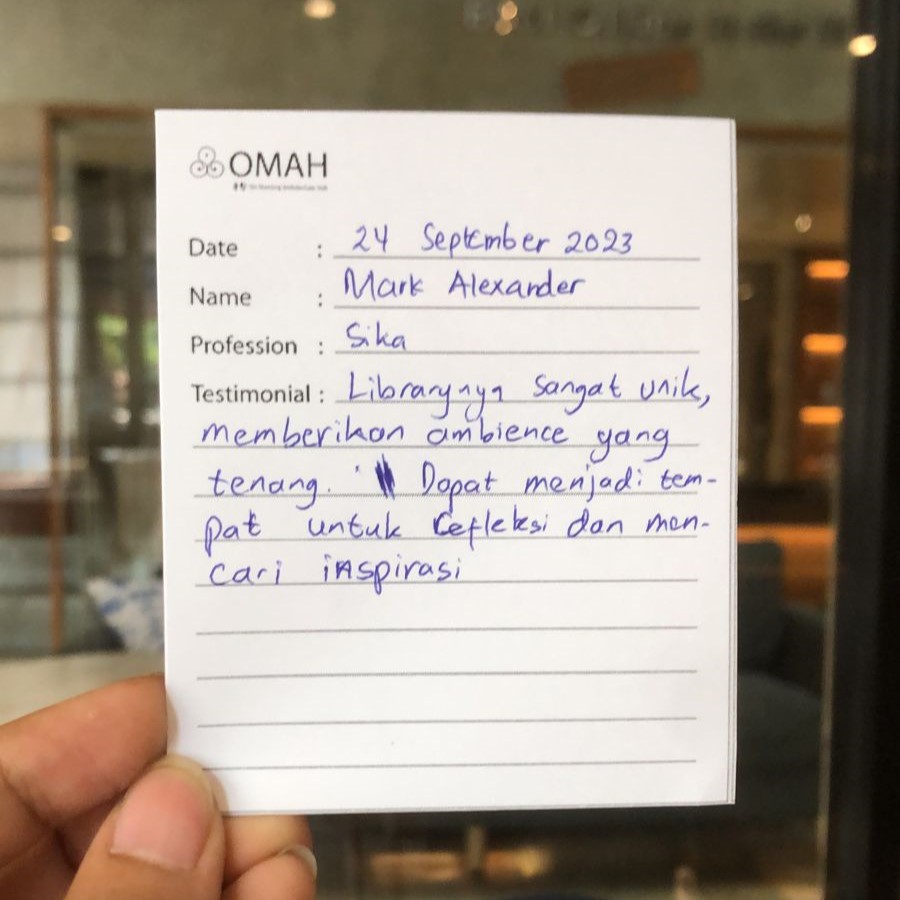 OMAH
Date : 24 September 2023
Name : Mark Alexander
Profession : Sika
Testimonial : Librarynya sangat unik,
memberikan ambience yang
tenang. Dapat menjadi tem-
pat untuk refleksi dan men-
cari inspirasi